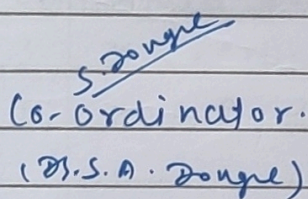 S. Dongre
Co-ordinator.
(Dr. S. A. Dongre)